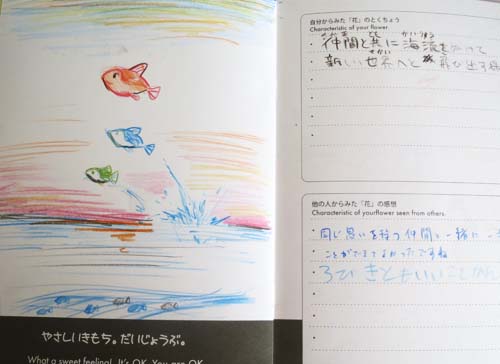 やさしいきもち。だいじょうぶ。
What a sweet feeling! It's OK. You are OK.
自分からみた「花」のとくちょう
Characteristic of your flower.
仲間と共に海流をかって
新しい世界へと飛び出す
他の人からみた「花」の感想
Characteristic of yourflower seen from others.
同じ思いを持つ仲間と一緒に
ことができてよかったですね